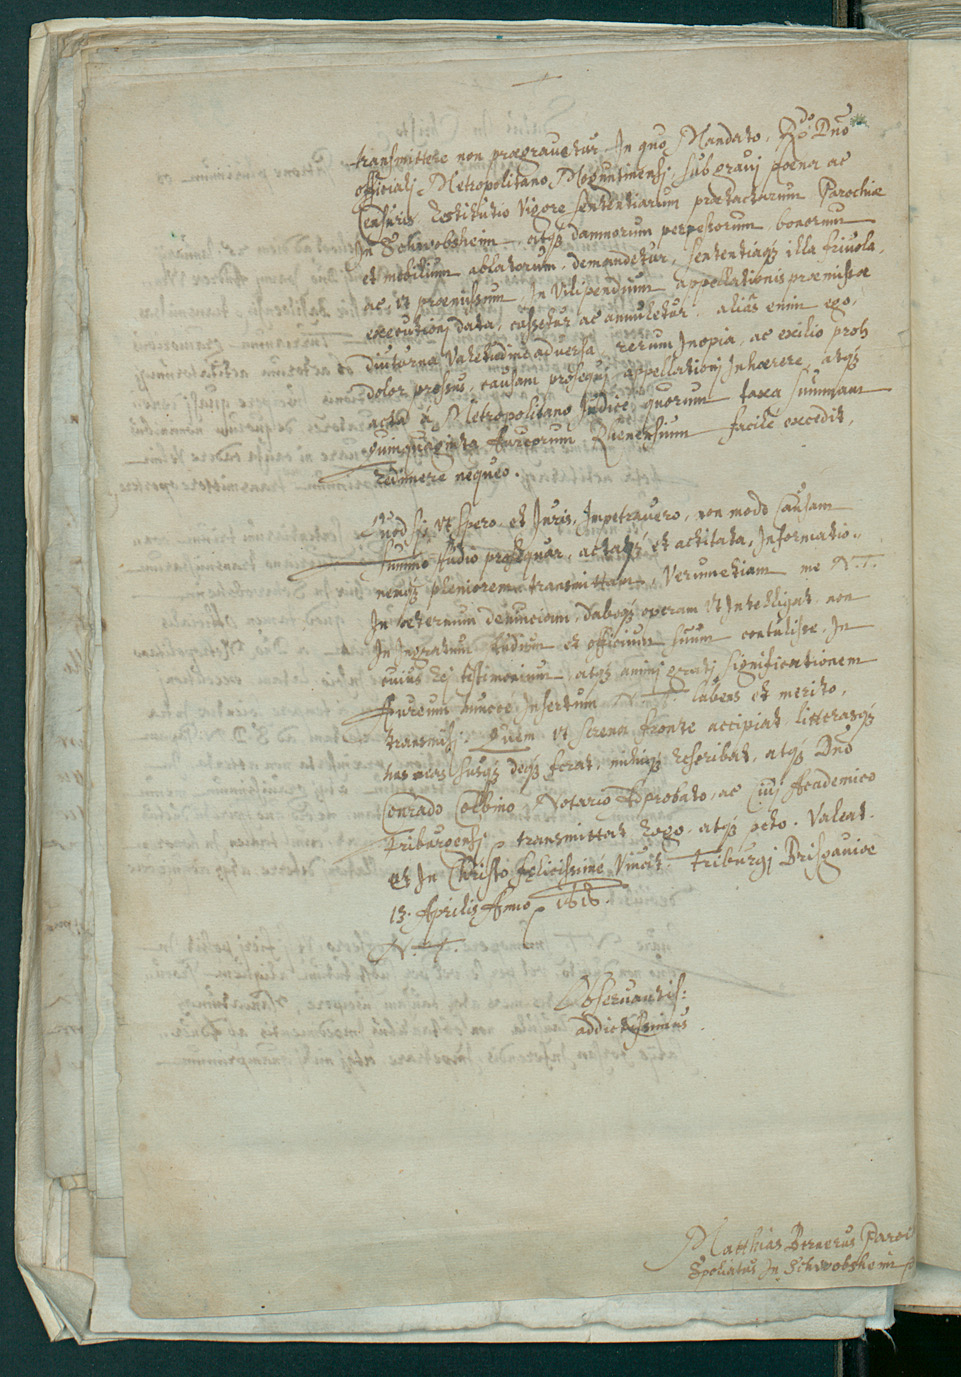 transmittere non praegravetur. In quo Mandato, Rdo Dno
officiali Metropolitano Moguntinensi, sub gravi poena ac
Censuris Restitutio vigore sententiarum praetactarum Parochiae
in Schwobsheim, atqz damnorum perpessorum, bonorum
et mobilium ablatorum, demandetur, sententiaqz illa frivola,
ac ut praemissum in vilipendium appellationis praemissae
executioni data, cassetur ac annulletur. alias enim ego,
diuturna valetudine adversa, rerum inopia, ac exilio proh
dolor pressus, causam prosequi, appellationi inhaerere, atqz
acta à Metropolitano Iudice, quorum taxa summam
quinquaginta Aureorum Rhenensium facilè excedit,
redimere nequeo.
Quod si, ut spero, et Iuris, impetravero, non modo causam
summo studio prosequar, actaqz et actitata, informatio-
nemqz pleniorem transmittam, Verum etiam me N.T.
in aeternum devinciam, daboqz operam ut intelligat, non
in ingratum studium et officium suum contulisse. In
cuius rei testimonium, atqz animi grati significationem
Aureum huncce insertum N.T. lubens et merito,
transmisi. Quem ut serena fronte accipiat, litterasqz
has meas susqz deqz ferat, mihiqz rescribat, atqz Dno
Conrado Notario Approbato, ac Civi Academico
Friburgensi transmittat rogo, atqz peto. Valeat
et in Christo felicissime vivat. Friburgi Brisgauiae
13. Aprilis Anno 1616.
N. T.
Observantiss:
addictissimus
Matthias Bernerus Paroc
Spoliatus in Schwobsheim